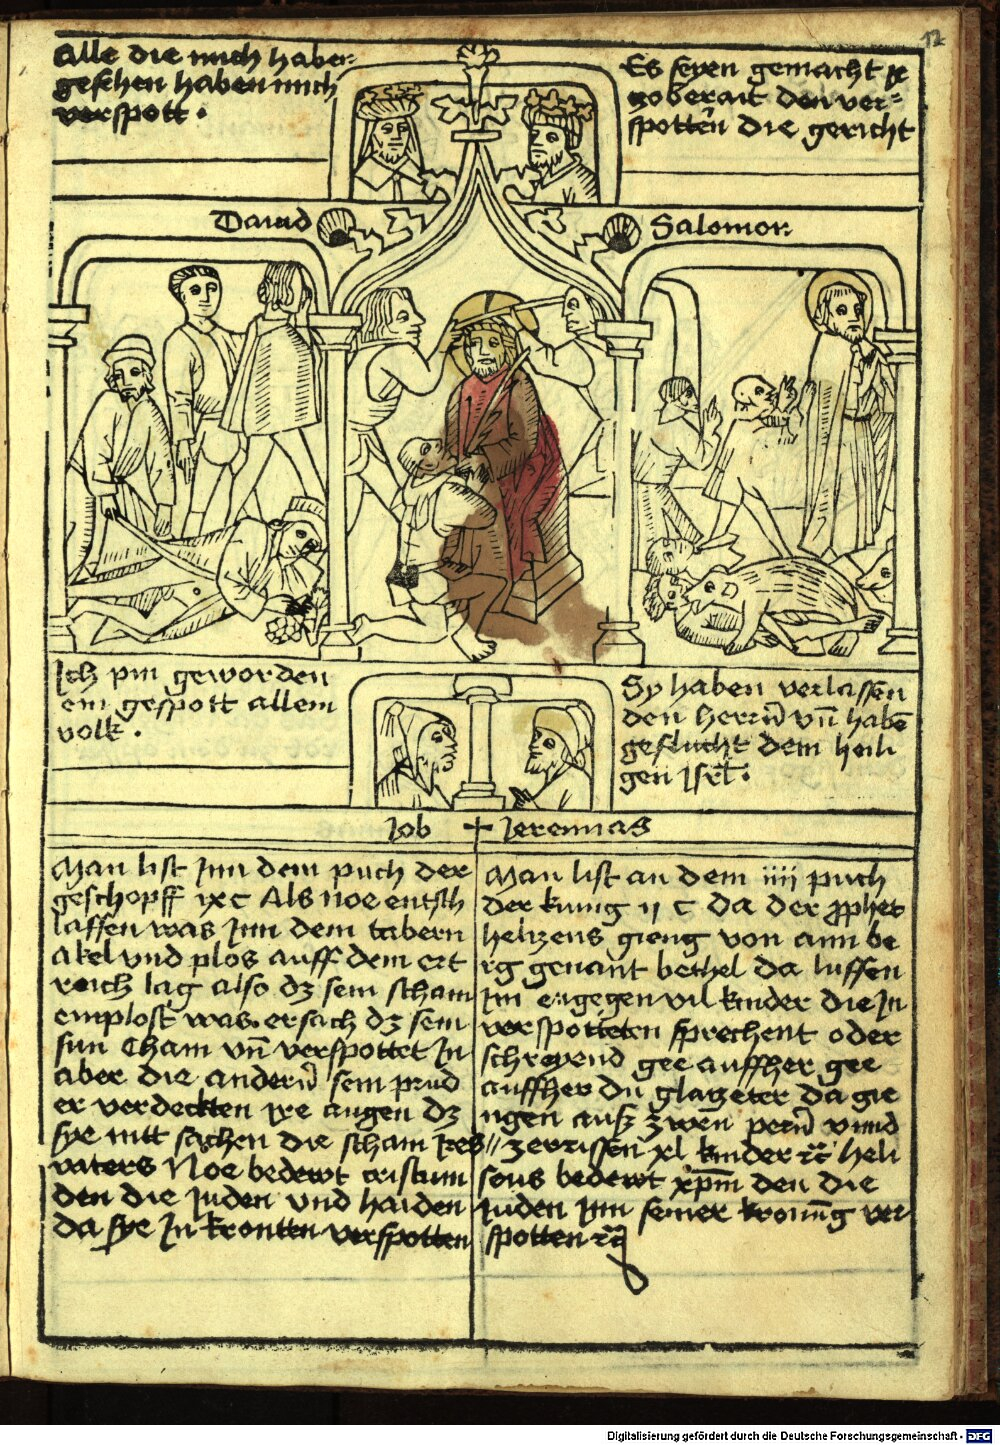 12
Alle die mich haben
gesehen haben mich
verspott .
Es seyen gemacht
zoberait den ver=
spottern die gericht
Dauid
Salomon
Ich pin geworden
ein gespott allem
volk .
Sy haben verlassen
den herrn vn̄ habē
geflucht dem heili
gen Isrl̄ .
Job + Jeremias
Man list Inn dem puch der
geschopff ixc Als Noe entsch
laffen was Inn dem tabern
akel vnd plos auff dem ert
reich lag also dz sein scham
emplost was. ersach dz sein
sun Cham vn̄ verspottet In
aber die andern sein prud
er verdeckten ire augen dz
sye nitt sachen die scham Ires
vaters Noe bedewt cristum
den die Juden vnd haiden
da sye In kronten verspotten
Man list an dem iiii puch
der kunig ii c da der prophet
helizeus gieng von aim be
rg genant bethel da luffen
Im engegen vil kinder die In
verspotteten sprechent oder
schreyend gee auffher gee
auffher du glatzeter da gie
ngen auß zwen pern vnnd
zerrissen xl kinder rc̄ heli
seus bedewt xpm̄ den die
Juden Inn seiner kronūg ver
spotten rc̄
Digitalisierung gefördert durch die Deutsche Forschungsgemeinschaft - DFG